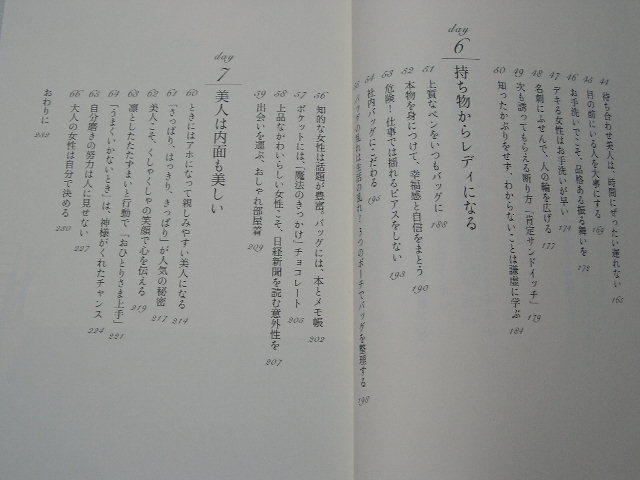 44 待ち合わせ美人は、時間にぜったい遅れない 165
45 目の前にいる人を大事にする 169
46 お手洗いでこそ、品格ある振る舞いを 172
47 デキる女性はお手洗いが早い 174
48 名刺にふせんで、人の輪を広げる 177
49 次も誘ってもらえる断り方「肯定サンドイッチ」 179
50 知ったかぶりをせず、わからないことは謙虚に学ぶ 184
day 6 持ち物からレディになる
51 上質なペンをいつもバッグに 188
52 本物を身につけて、幸福感と自信をまとう 190
53 危険！仕事では揺れるピアスをしない 193
54 社内バッグにこだわる 195
55 バッグの乱れは生活の乱れ！3つのポーチでバッグを整理する 198
56 知的な女性は話題が豊富。バッグには、本とメモ帳 202
57 ポケットには、「魔法のきっかけ」チョコレート 205
58 上品なかわいらしい女性こそ、日経新聞を読む意外性を 207
59 出会いを運ぶ、おしゃれ部屋着 209
day 7 美人は内面も美しい
60 ときにはアホになって親しみやすい美人になる 214
61 「さっぱり、はっきり、きっぱり」が人気の秘密 217
62 美人こそ、くしゃくしゃの笑顔で心を伝える 219
63 凛としたたたずまいと行動で「おひとりさま上手」 221
64 「うまくいかないとき」は、神様がくれたチャンス 224
65 自分磨きの努力は人に見せない 227
66 大人の女性は自分で決める 230
おわりに 232